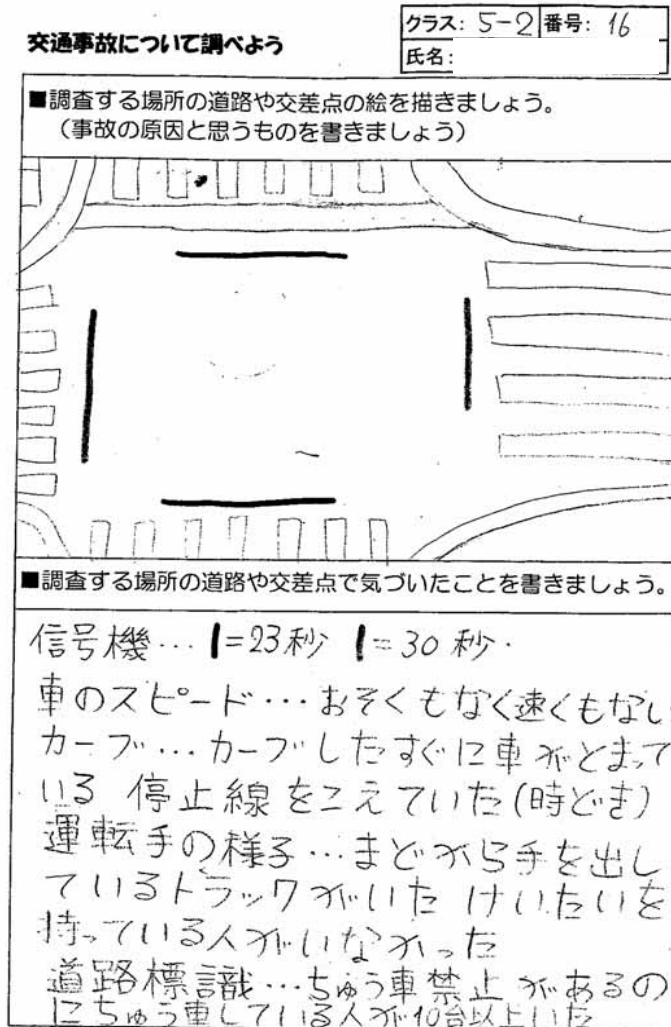 交通事故について調べよう
クラス: 5-2 番号: 16
氏名:
■調査する場所の道路や交差点の絵を描きましょう。
(事故の原因と思うものを書きましょう)
■調査する場所の道路や交差点で気づいたことを書きましょう。
信号機…1=23秒 1=30秒.
車のスピード…おそくもなく速くもない
カーブ…カーブしたすぐに車がとまって
いる 停止線をこえていた(時どき)
運転手の様子…まどから手を出し
ているトラックがいた けいたいを
持っている人がいなかった
道路標識…ちゅう車禁止があるの
にちゅう車している人が10台以上いた